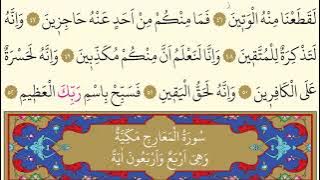 لَقَطَعْنَا مِنْهُ الْوَتِينَ ٤٦ فَمَا مِنْكُمْ مِنْ اَحَدٍ عَنْهُ حَاجِزِينَ ٤٧ وَاِنَّهُ
لَتَذْكِرَةٌ لِلْمُتَّقِينَ ٤٨ وَاِنَّا لَنَعْلَمُ اَنَّ مِنْكُمْ مُكَذِّبِينَ ٤٩ وَاِنَّهُ لَحَسْرَةٌ
عَلَى الْكَافِرِينَ ٥٠ وَاِنَّهُ لَحَقُّ الْيَقِينِ ٥١ فَسَبِّحْ بِاسْمِ رَبِّكَ الْعَظِيمِ ٥٢
سُورَةُ الْمَعَارِجِ مَكِّيَّةٌ
وَهِىَ اَرْبَعٌ وَاَرْبَعُونَ اٰيَةً